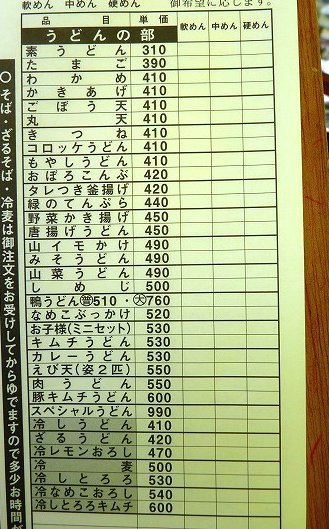 軟めん 中めん 硬めん 御希望に応じます。
品目 単価 軟めん 中めん 硬めん
うどんの部
素うどん 310
たまご 390
わかめ 410
かきあげ 410
ごぼう天 410
丸天 410
きつね 410
コロッケうどん 410
もやしうどん 410
おぼろこんぶ 420
タレつき釜揚げ 420
緑のてんぷら 440
野菜かき揚げ 450
唐揚げうどん 450
山イモかけ 490
みそうどん 490
山菜うどん 490
しめじ 500
鴨うどん㊥510・㊛760
なめこぶっかけ 520
お子様(ミニセット) 530
キムチうどん 530
カレーうどん 530
えび天(姿2匹) 550
肉うどん 550
豚キムチうどん 600
スペシャルうどん 990
冷しうどん 410
ざるうどん 420
冷レモンおろし 470
冷麦 500
冷しとろろ 530
冷なめこおろし 540
冷しとろろキムチ 600
○そば・ざるそば・冷麦は御注文をお受けしてからゆでますので多少お時間が